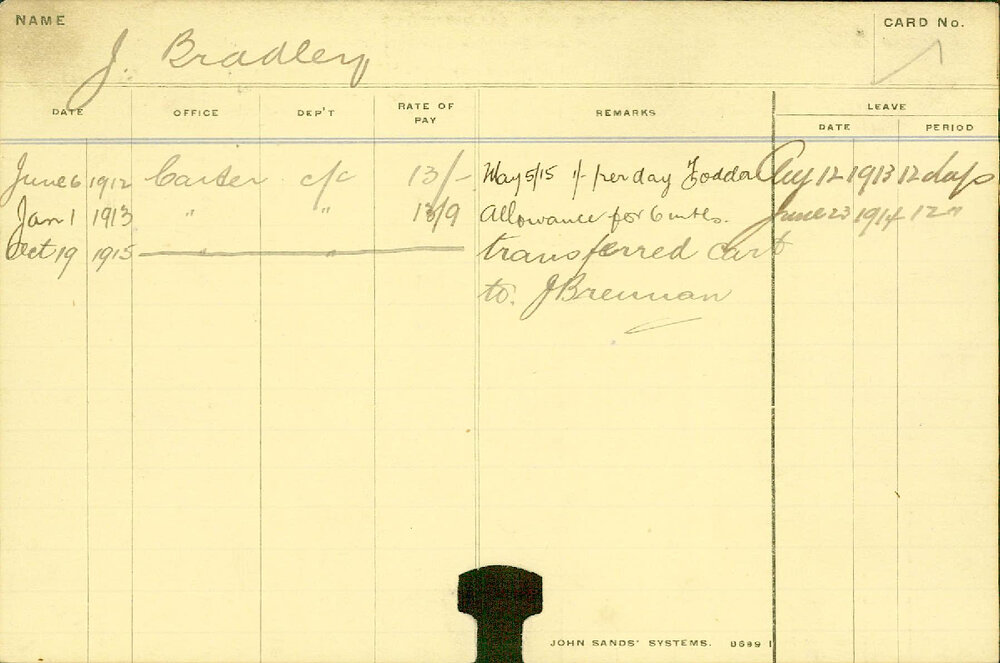 NAME CARD No.
J. Bradley
DATE OFFICE DEP'T RATE OF PAY REMARKS LEAVE
DATE PERIOD
June 6 1912 Carter c/c 13/- May 5/15 1/- per day Fodder Aug 12 1913 12 days
Jan 1 1913 " " 13/9 Allowance for 6 mths. June 23 1914 12 "
Oct 19 1915 " " transferred cart
to J Brennan
JOHN SANDS' SYSTEMS. 8699